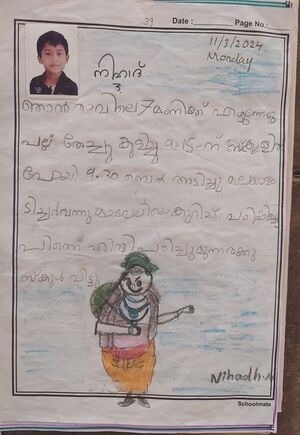 39 Date : Page No.:
11/3/2024
Monday
നിഹാദ്
3
ഞാൻ രാവിലെ 7 മണിക്ക് എഴുന്നേറ്റു
പല്ല് തേച്ചു കുളിച്ചു 9:15-ന് സ്കൂളിൽ
പോയി 9.30 ബെൽ അടിച്ചു മലയാളം
ടീച്ചർ വന്നു പഠിപ്പിച്ചു
പിന്നെ ഹിന്ദി പഠിച്ചു
സ്കൂൾ വിട്ടു
Nihadh.N
Schoolmate